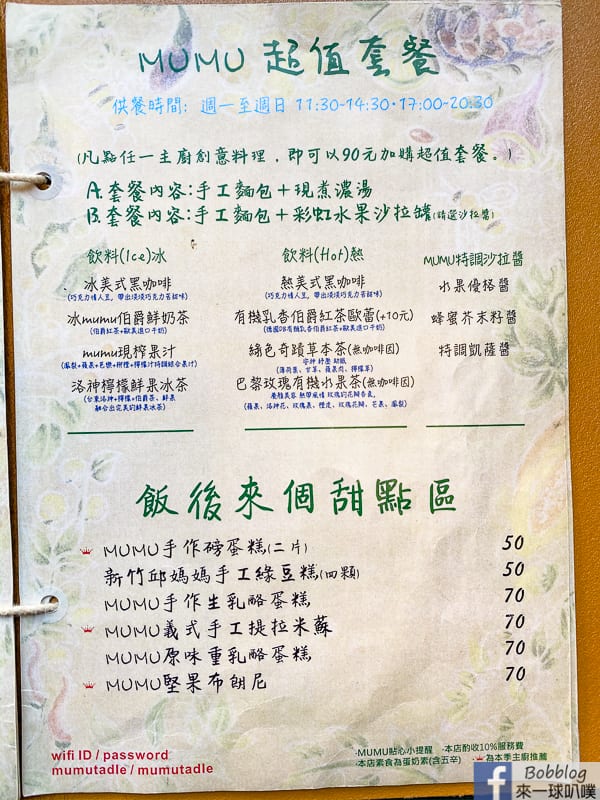 MUMU 超值套餐
供餐時間: 週一至週日 11:30-14:30·17:00-20:30
(凡點任一主廚創意料理,即可以90元加購超值套餐。)
A.套餐內容:手工麵包+現煮濃湯
B.套餐內容:手工麵包+彩虹水果沙拉罐(請選沙拉醬)
飲料(Ice)冰
冰美式黑咖啡
(巧克力情人豆, 帶出淡淡巧克力苦甜味)
冰mumu伯爵鮮奶茶
(伯爵紅茶+歐美進口牛奶)
mumu現榨果汁
(鳳梨+蘋果+芭樂+柳橙+檸檬汁特調綜合果汁)
洛神檸檬鮮果冰茶
(台東洛神+檸檬+伯爵茶、鮮果
融合出完美的鮮果冰茶)
飲料(Hot)熱
熱美式黑咖啡
(巧克力情人豆, 帶出淡淡巧克力苦甜味)
有機乳香伯爵紅茶歐蕾(+10元)
(德國DB有機乳香伯爵紅茶+歐美進口牛奶)
綠色奇蹟草本茶(無咖啡因)
安神 紓壓 助眠
(薄荷葉、甘草、蘋果肉、檸檬草)
巴黎玫瑰有機水果茶(無咖啡因)
養顏美容 熱帶風情 玫瑰的花瓣香氣,
(蘋果、洛神花、玫瑰果、橙皮、玫瑰花瓣、芒果、鳳梨)
MUMU特調沙拉醬
水果優格醬
蜂蜜芥末籽醬
特調凱薩醬
飯後來個甜點區
MUMU手作磅蛋糕(二片) 50
新竹邱媽媽手工綠豆糕(四顆) 50
MUMU手作生乳酪蛋糕 70
MUMU義式手工提拉米蘇 70
MUMU原味重乳酪蛋糕 70
MUMU堅果布朗尼 70
wifi ID / password
mumutadle / mumutadle
·MUMU貼心小提醒 ·本店酌收10%服務費
·本店素食為蛋奶素(含五辛) ·為本季主廚推薦
Bobblog
來一球叭噗